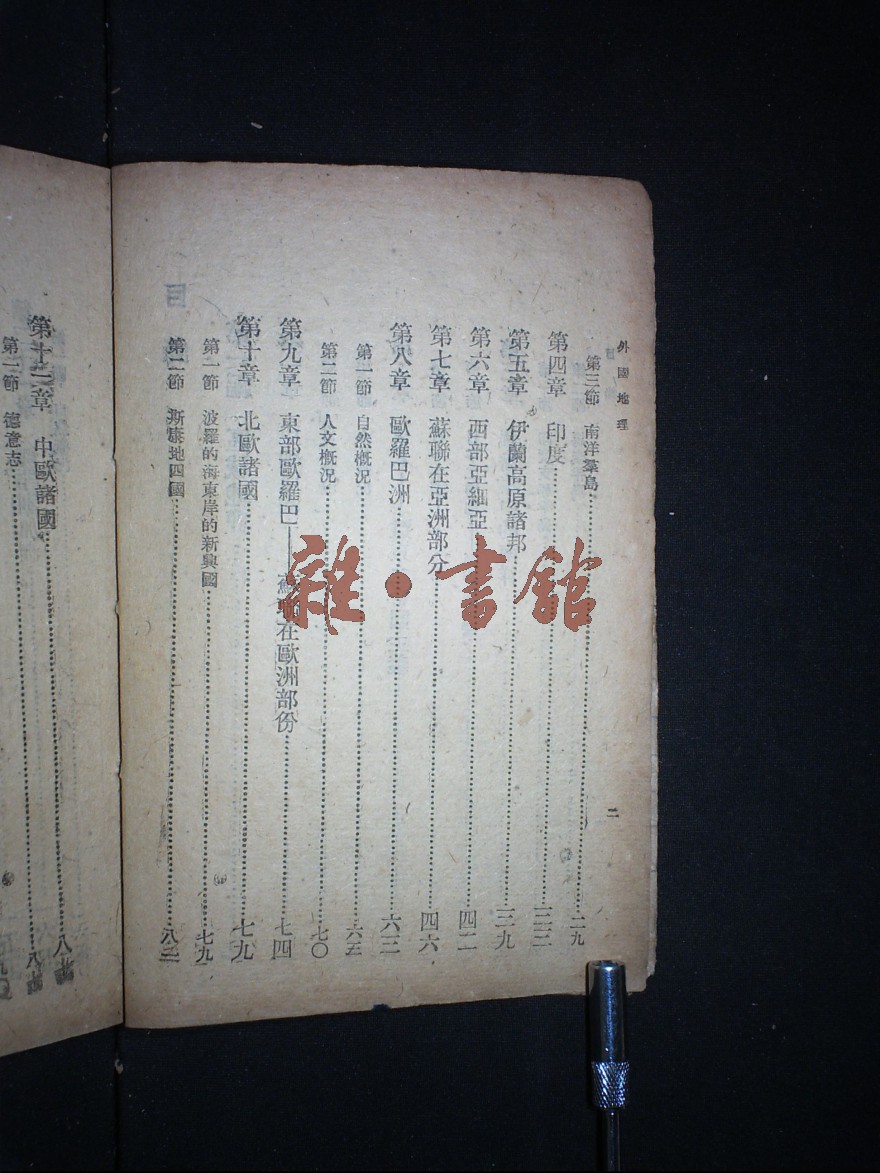 外國地理
二
第三節 南洋羣島……二九
第四章 印度……三三
第五章 伊蘭高原諸邦……三九
第六章 西部亞細亞……四二
第七章 蘇聯在亞洲部分……四六
第八章 歐羅巴洲……六三
第一節 自然概況……六三
第二節 人文概況……七〇
第九章 東部歐羅巴——蘇聯在歐洲部份……七四
第十章 北歐諸國……七九
第一節 波羅的海東岸的新興國……七九
第二節 斯康地四國……八二
第十一章 中歐諸國……八
第一節 德意志……八
雜·書館